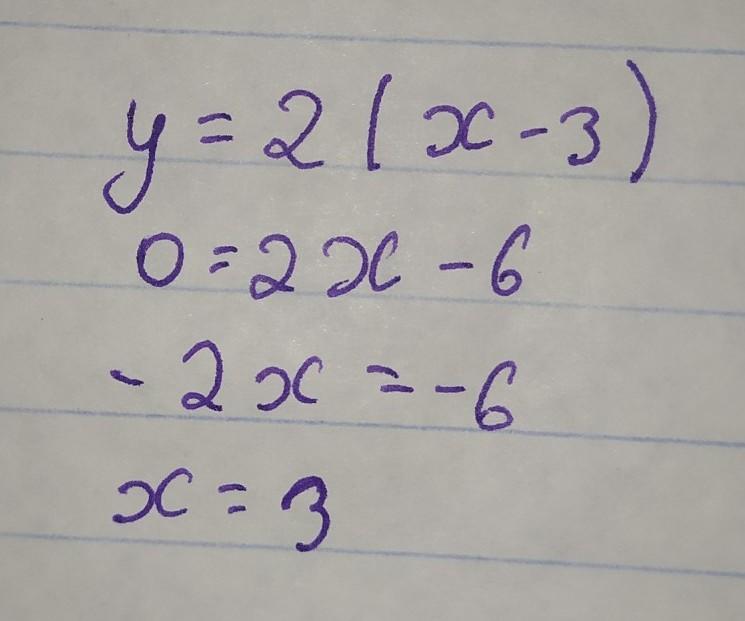 y = 2 (x - 3)
0 = 2x - 6
- 2x = -6
x = 3